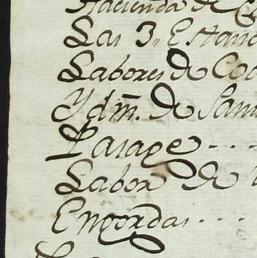 Hacienda de
Las 3,, Estanc
Labores de Coc
Ydm̃. de San
Parage - - -
Labor de
Engordas - - -